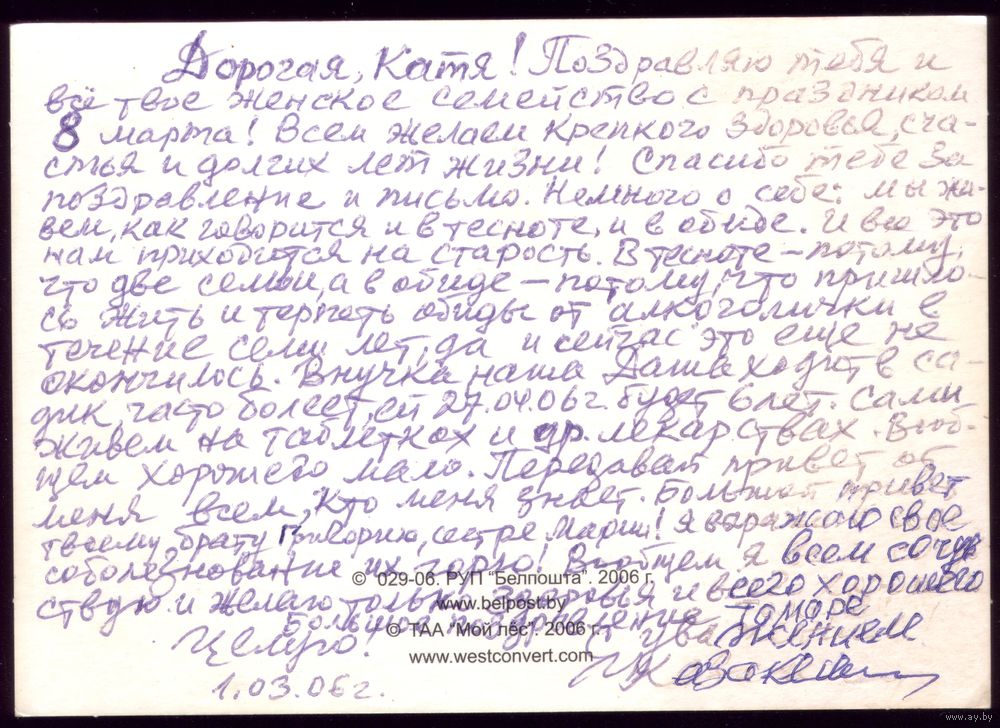 Дорогая, Катя! Поздравляю тебя и
всё твое женское семейство с праздником
8 марта! Всем желаем крепкого здоровья, сча-
стья и долгих лет жизни! Спасибо тебе за
поздравление и письмо. Немного о себе: мы жи-
вем, как говорится и в тесноте, и в обиде. И всё это
нам приходится на старость. В тесноте – потому,
что две семьи, а в обиде – потому, что пришло-
сь жить и терпеть обиды от алкоголички в
течение семи лет, да и сейчас это еще не
окончилось. Внучка наша Даша ходит в са-
дик, часто болеет, ей 27.04.06 г. будет 6 лет. Сами
живем на таблетках и др. лекарствах. Вооб-
щем хорошего мало. Передавай привет от
меня всем, кто меня знает. Большой привет
твоему брату Григорию, сестре Марии! Я выражаю свое
соболезнование их горю! Вообщем я всем сочув
ствую и желаю только здоровья и всего хорошего
Большое поздравление Томаре
Целую! С уважением
1.03.06 г.
© 029-06. РУП "Белпошта". 2006 г.
www.belpost.by
© ТАА "Мой лёс". 2006 г.
www.westconvert.com
www.ay.by